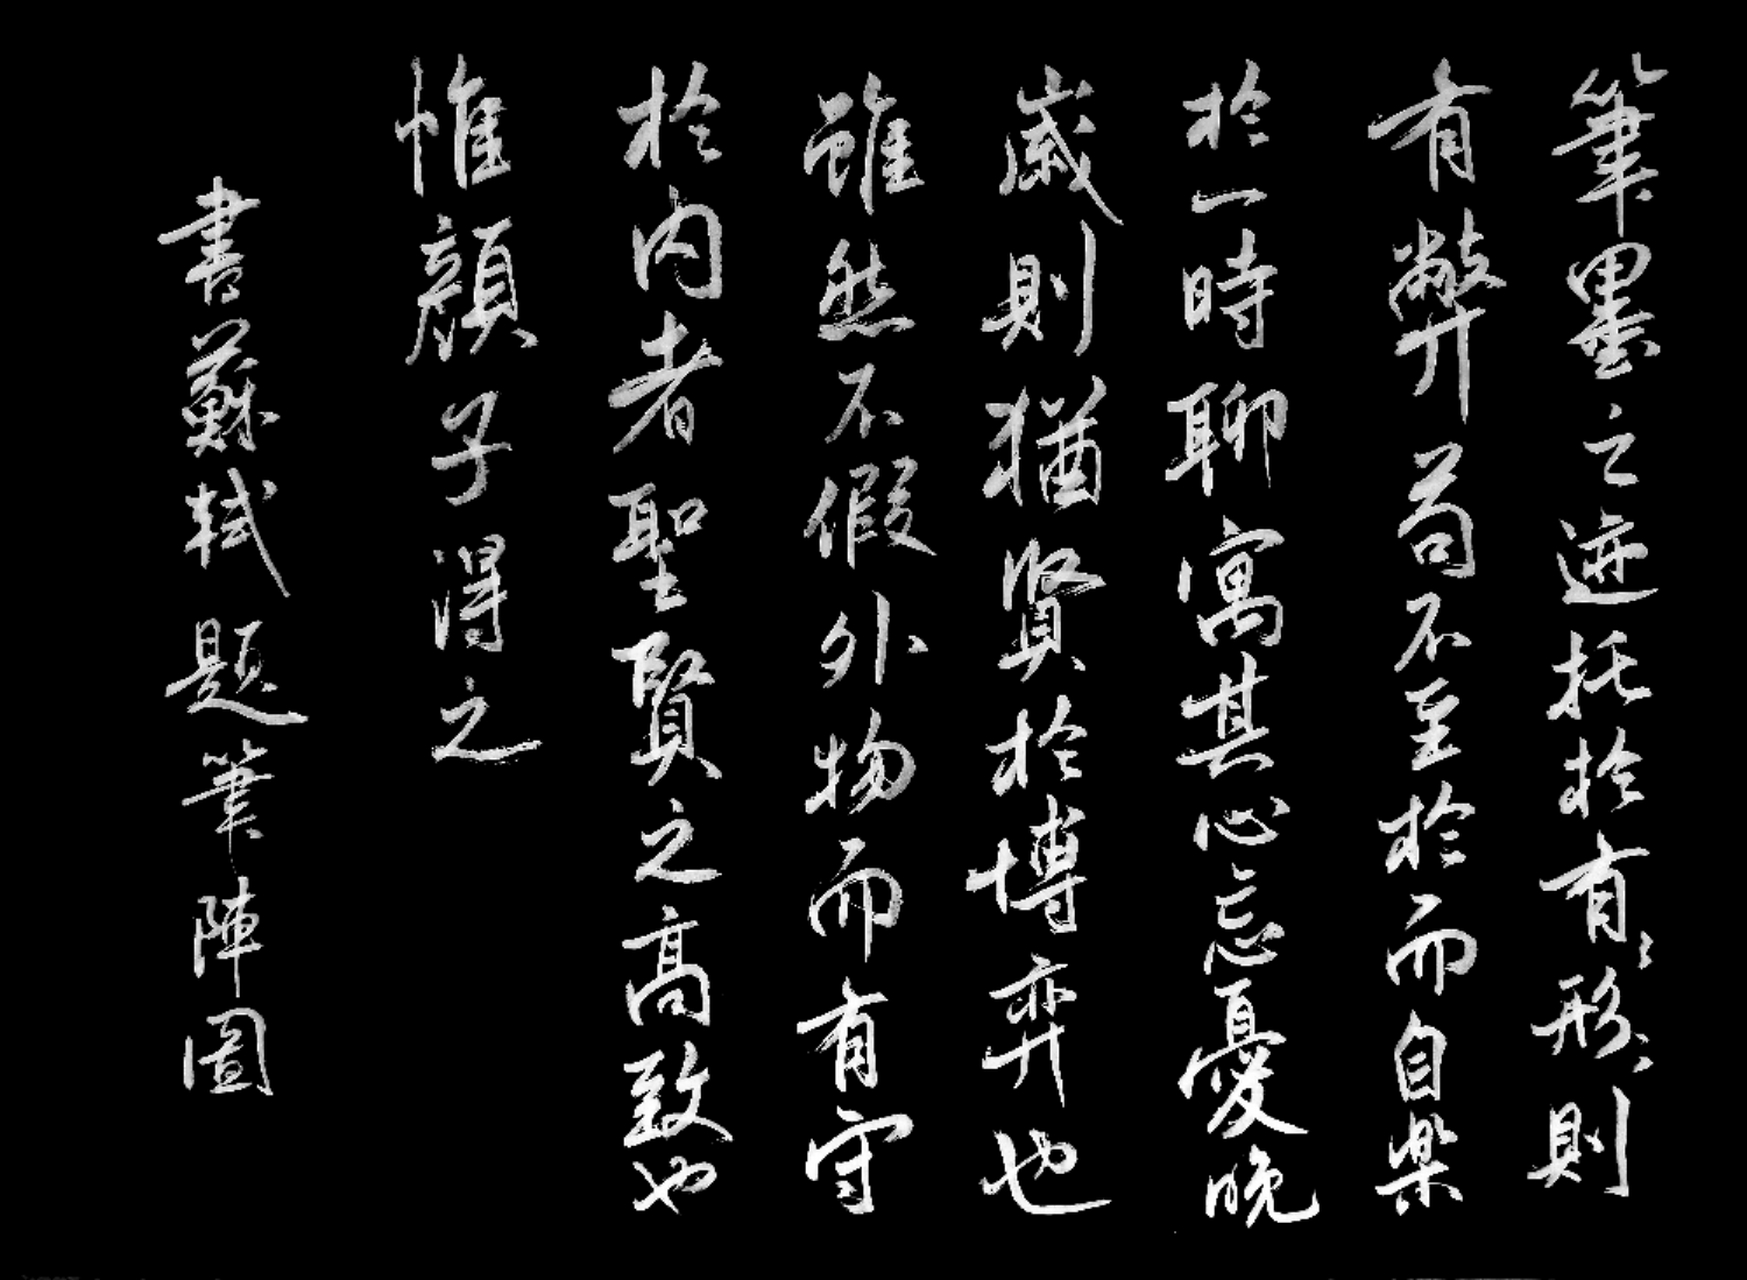 筆墨之迹托於有々形々則
有弊苟不至於而自楽
於一時聊寓其心忘憂晚
歲則猶賢於博弈也
雖然不假外物而有守
於内者聖賢之高致也
惟顏子得之
書蘇軾題筆陣圖